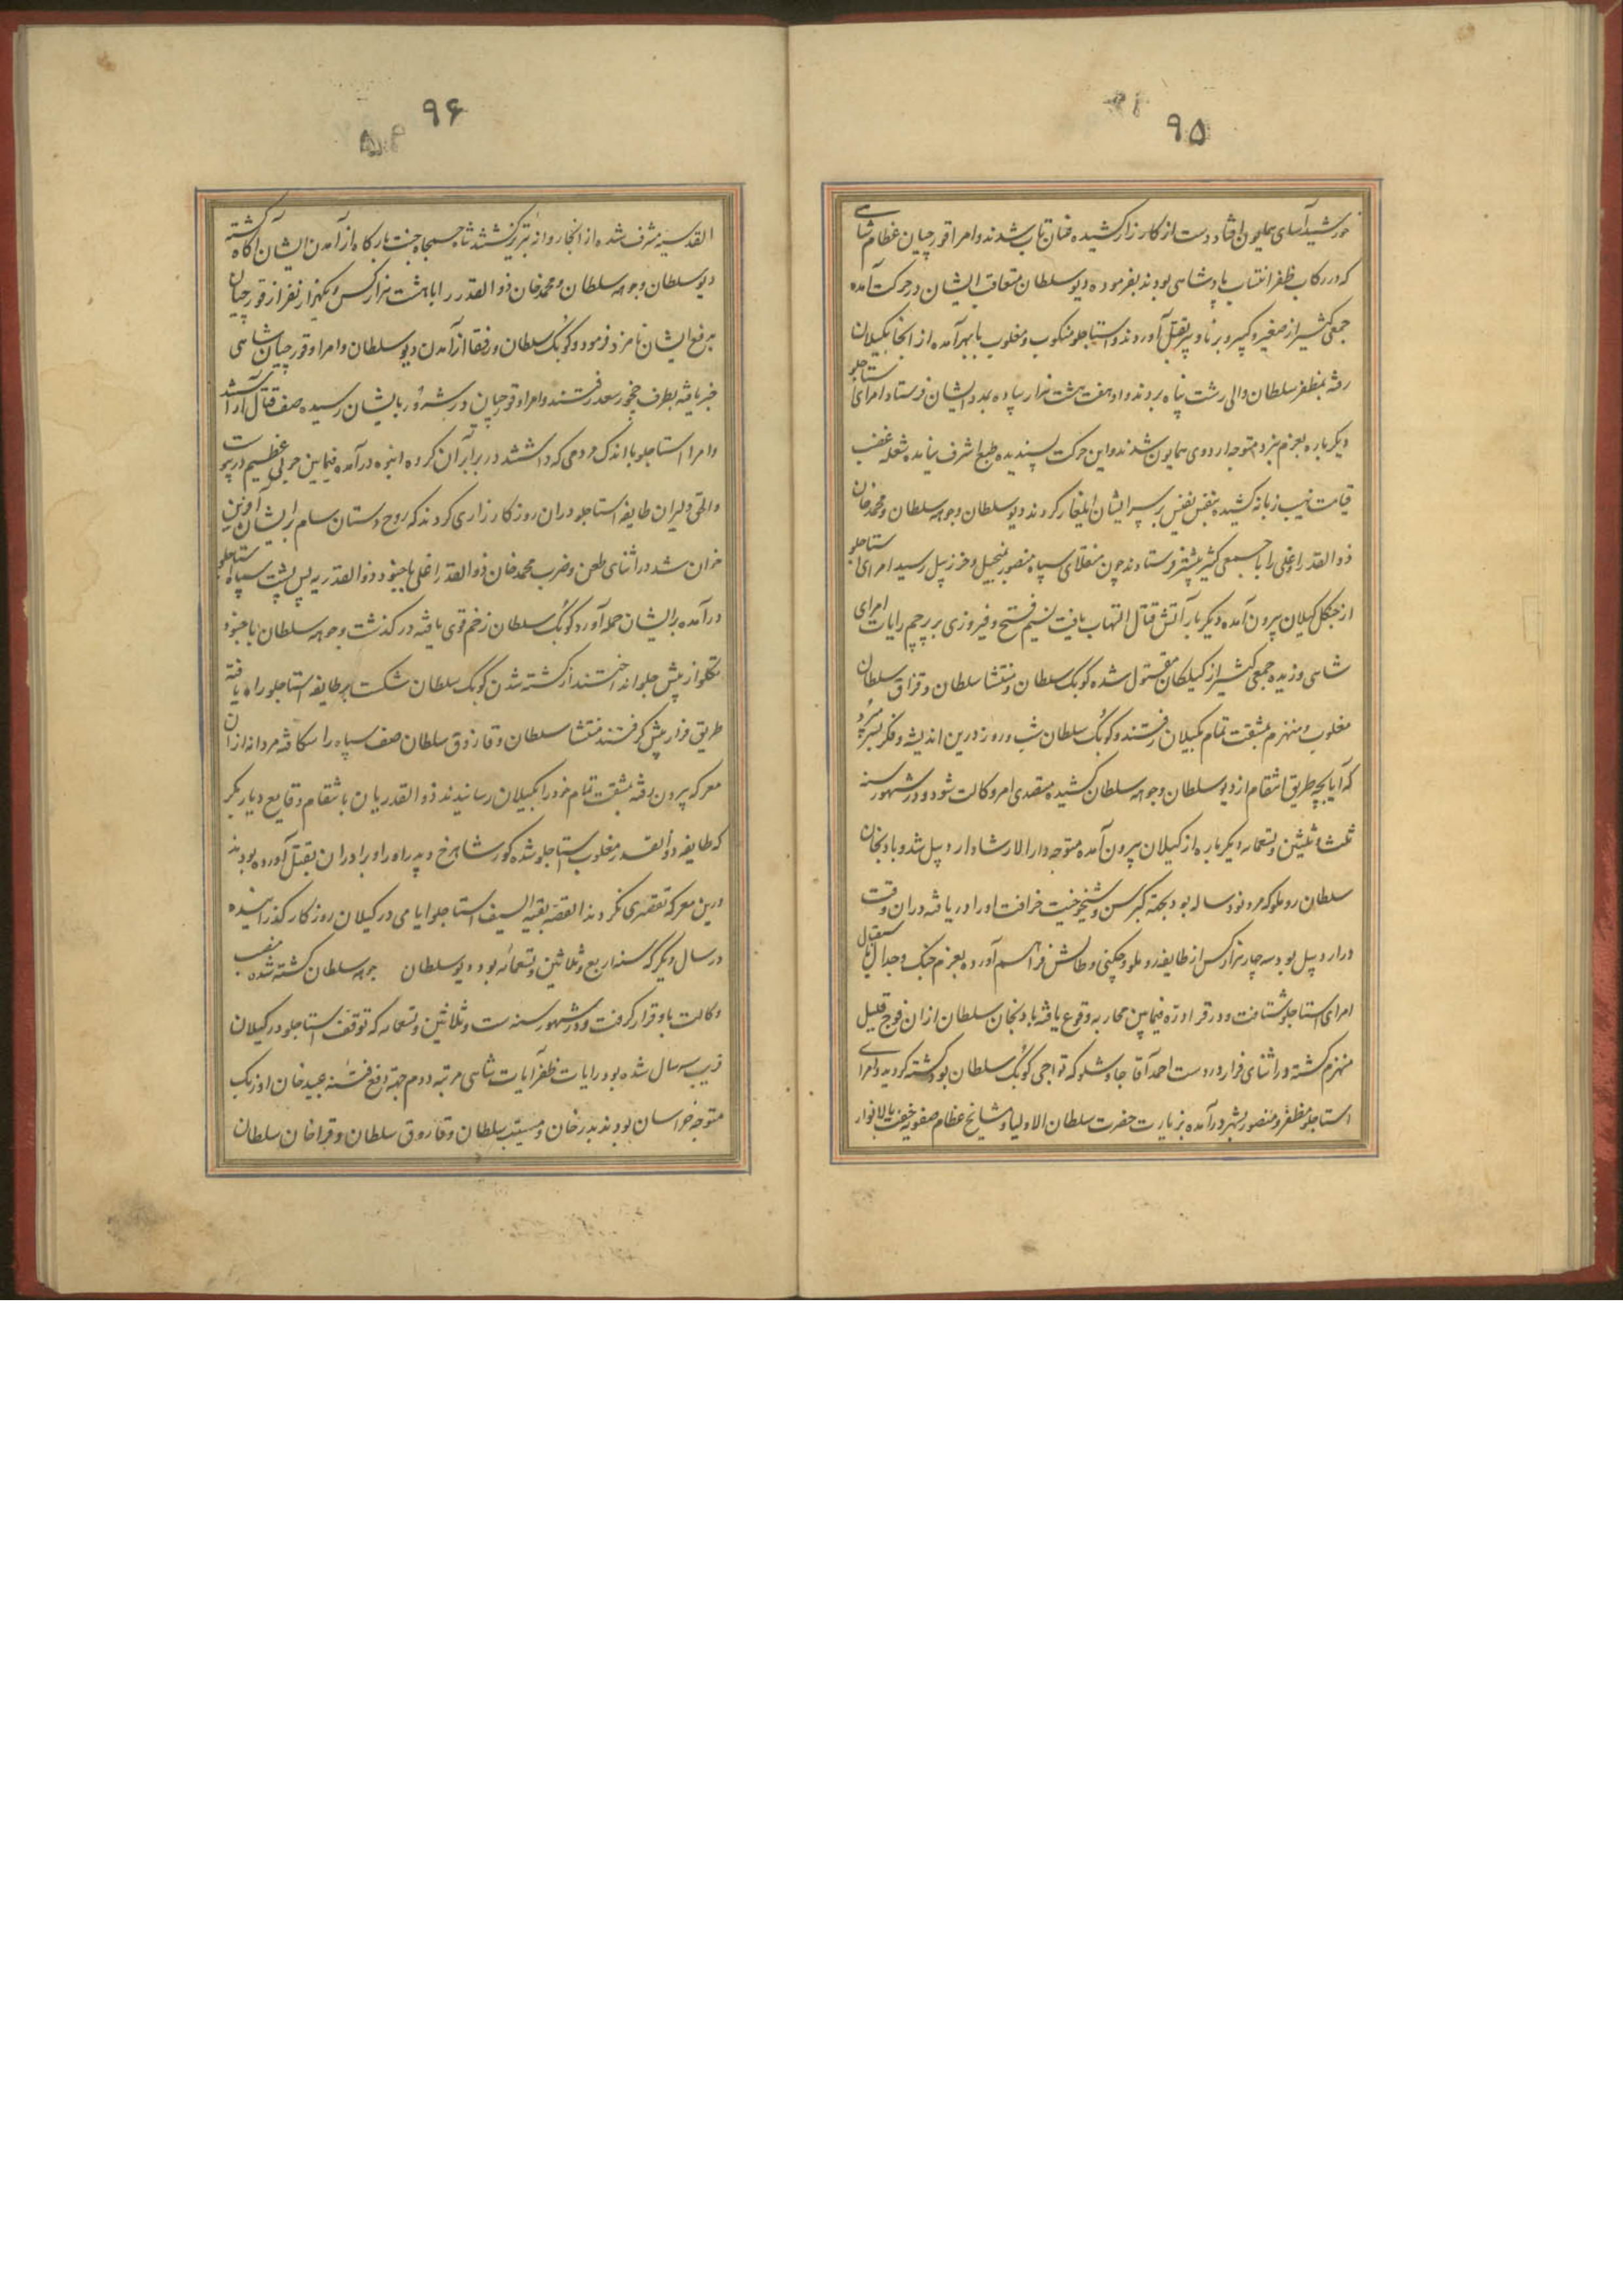 ۹۵
خورشید آسای همایون افتاد دست از کارزار کشیده عنان تاب شدند و امرا و قورچیان عظام شاهی
که در رکاب ظفر انتساب پادشاهی بودند بفرموده دیو سلطان متعاقب ایشان در حرکت آمده
جمعی کثیر از صغیر و کبیر و برنا و پیر بقتل آوردند و استاجلو منکوب و مغلوب بابهر آمده از انجا بکیلان
رفته بمظفر سلطان والی رشت پناه بردند و او هفت هشت هزار پیاده بمدد ایشان فرستاد امرای استاجلو
دیکر باره بعزم نبرد متوجه اردوی همایون شدند و این حرکت پسندیده طبع اشرف نیامده شعله غضب
قیامت نهیب زبانه کشیده بنفس نفیس بر سر ایشان ایلغار کردند دیو سلطان و جوهه سلطان و محمد خان
ذوالقدر اغلی را با جمعی کثیر پیشتر فرستادند چون منقلای سپاه منصور بمنجیل و خرزبیل رسید امرای استاجلو
از جنکل کیلان بیرون آمده دیکر بار آتش قتال التهاب یافت نسیم فتح و فیروزی بر پرچم رایات امرای
شاهی وزیده جمعی کثیر از کیلکان مقتول شده کوبک سلطان و منتشا سلطان و قزاق سلطان
مغلوب و منهزم بمشقت تمام بکیلان رفتند و کوبک سلطان شب و روز درین اندیشه و فکر بسر میبرد
که آیا بچه طریق انتقام از دیو سلطان و جوهه سلطان کشیده متصدی امر وکالت شود و در شهور سنه
ثلث و ثلثین و تسعمایه دیکر باره از کیلان بیرون آمده متوجه دارالارشاد اردبیل شد و بادنجان
سلطان روملو که مرد نود ساله بود بجهة کبر سن و شیخوخیت خرافت او را دریافته دران وقت
در اردبیل بود سه چهار هزار کس از طایفه روملو و چکنی و طالش فراهم آورده بعزم جنک و جدال باستقبال
امرای استاجلو شتافت و در قرادره فیمابین محاربه وقوع یافته بادنجان سلطان ازان فوج قلیل
منهزم کشته در اثنای فرار در دست احمد آقا چاوشلو که تواجی کوبک سلطان بود کشته کردید و امرای
استاجلو مظفر و منصور بشهر درآمده بزیارت حضرت سلطان الاولیا و مشایخ عظام صفویه حفت بالانوار
۹۶
القدسیه مشرف شده از انجا روانه تبریز کشتند شاه جمجاه جنت بارکاه از آمدن ایشان آکاه کشته
دیو سلطان و جوهه سلطان و محمد خان ذوالقدر را با هشت هزار کس و یکهزار نفر از قورچیان
بدفع ایشان نامزد فرمود و کوبک سلطان و رفقا از آمدن دیو سلطان و امرا و قورچیان شاهی
خبر یافته بطرف جخور سعد رفتند و امرا و قورچیان در شرور بایشان رسیده صف قتال آرا شد
و امراء استاجلو با اندک مردمی که داشتند در برابر آن کروه انبوه درآمده فیمابین حربی عظیم در پیوست
والحق دلیران طایفه استاجلو دران روز کارزاری کردند که روح دستان سام بر ایشان آفرین
خوان شد در اثنای طعن و ضرب محمد خان ذوالقدر اغلی با جنود ذوالقدریه پس پشت سپاه استاجلو
درآمده بر ایشان حمله آورد کوبک سلطان زخم قوی یافته درکذشت و جوهه سلطان با جنود
تکلو از پیش جلو انداختند از کشته شدن کوبک سلطان شکست بر طایفه استاجلو راه یافته
طریق فرار پیش کرفتند منتشا سلطان و قازوق سلطان صف سپاه را شکافته مردانه ازان
معرکه بیرون رفته بمشقت تمام خود را بکیلان رسانیدند ذوالقدریان بانتقام وقایع دیار بکر
که طایفه ذوالقدر مغلوب استاجلو شده کور شاهرخ و پدر او را و برادران بقتل آورده بودند
درین معرکه تقصیری نکردند القصه بقیه السیف استاجلو ایامی در کیلان روزکار کذرانیده
در سال دیکر که سنه اربع و ثلاثین و تسعمائه بود دیو سلطان جوهه سلطان کشته شده منصب
وکالت باو قرار کرفت و در شهور سنه ست و ثلاثین و تسعمایه که توقف استاجلو در کیلان
قریب سه سال شده بود و رایات ظفر آیات شاهی مرتبه دوم جهة دفع فتنه عبید خان اوزبک
متوجه خراسان بودند بدر خان و مسیب سلطان و قازوق سلطان و قراخان سلطان